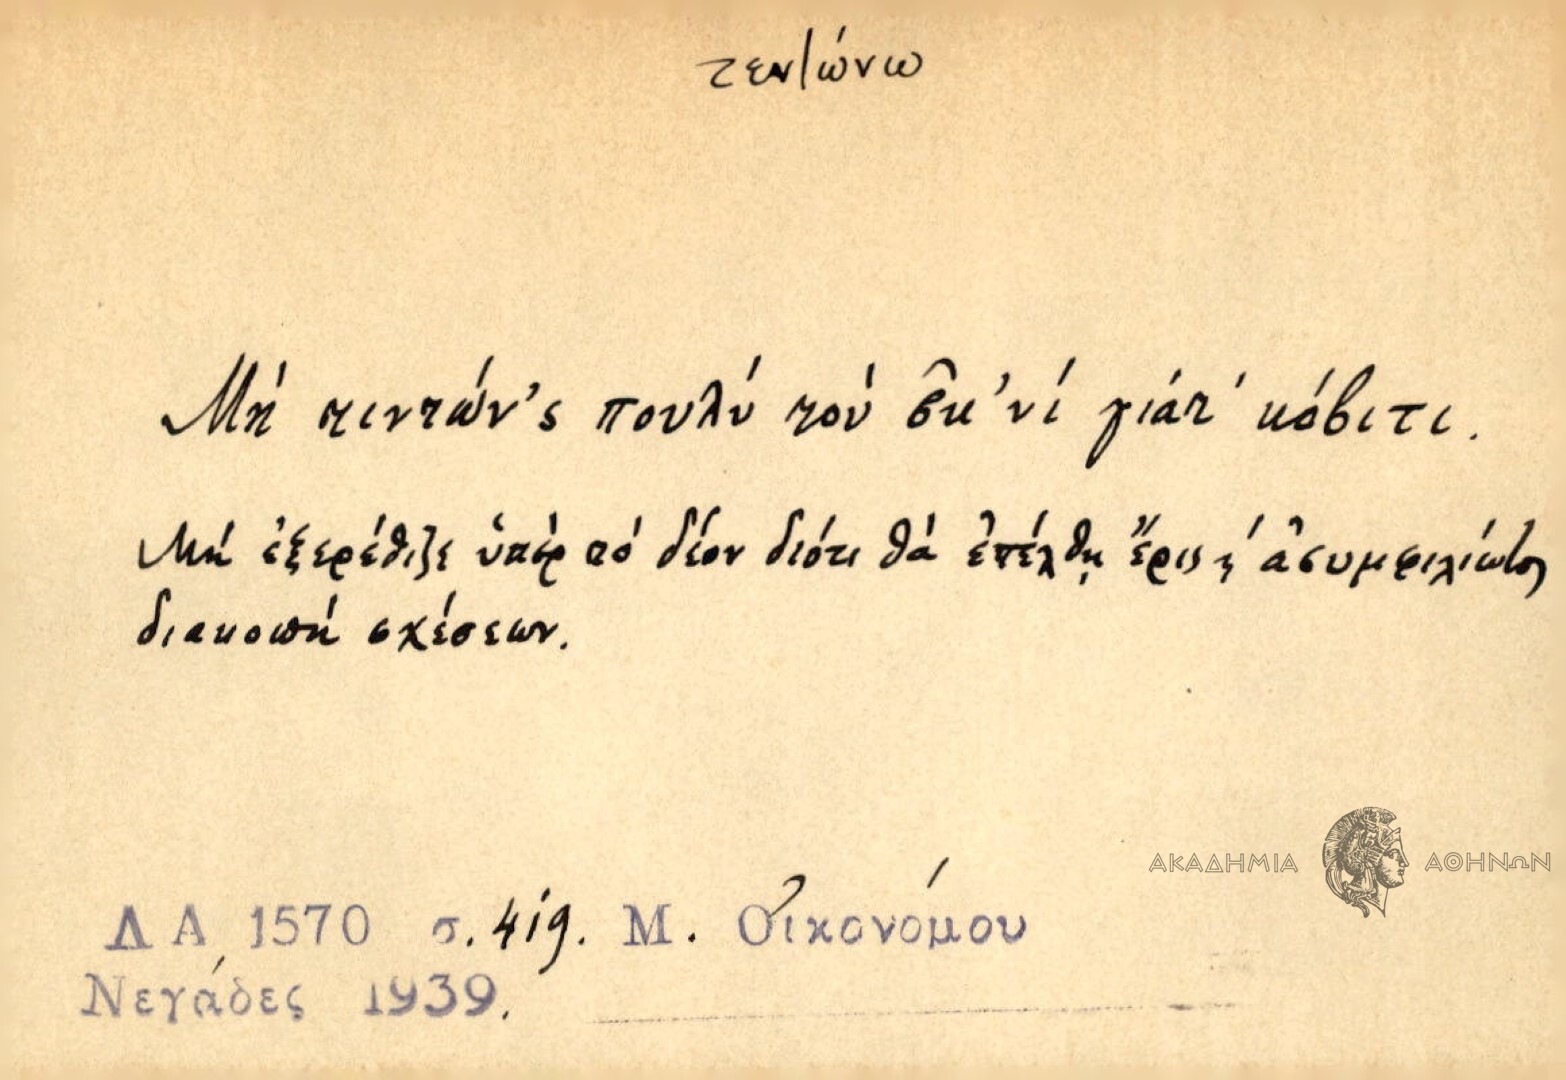 τεντώνω
Μή τιντών'ς πουλύ τού σκ'νί γιάτ' κόβιτι.
Μή ἐξερέθιζε ὑπέρ τό δέον διότι θά ἐπέλθῃ ἔρις ἤ ἀσυμφιλίωτος
διακοπή σχέσεων.
ΑΚΑΔΗΜΙΑ ΑΘΗΝΩΝ
ΛΑ 1570 σ. 419. Μ. Οἰκονόμου
Νεγάδες 1939.